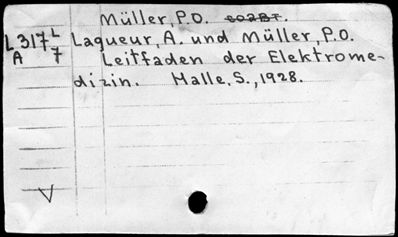 Müller, P.O.
L317 L Laqueur, A. und Müller, P.O.
A 7 Leitfaden der Elektrome-
dizin. Halle, S., 1928.
V